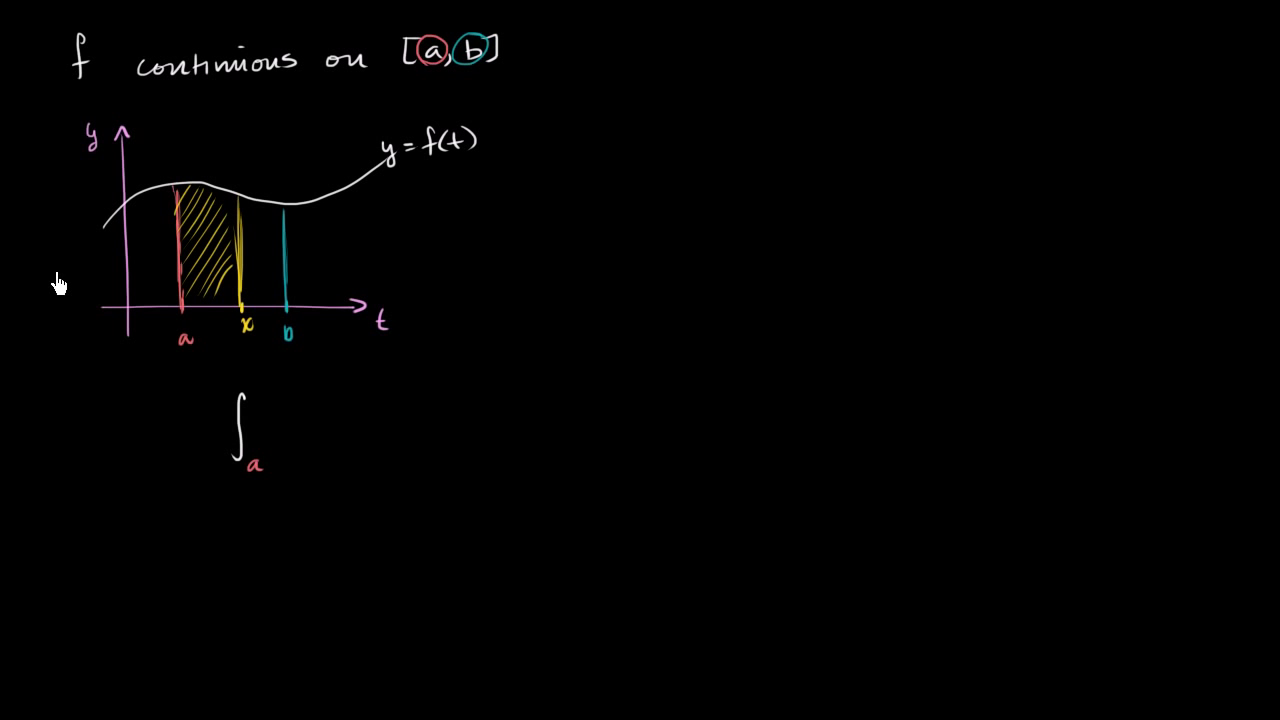 f continuous on [a, b]
y
y = f(t)
a
x
b
t
∫a